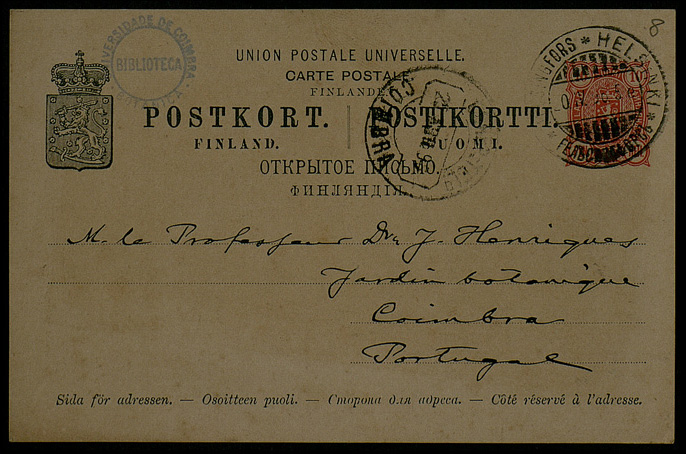 8
UNIVERSIDADE DE COIMBRA
BIBLIOTECA
BOTANICA
UNION POSTALE UNIVERSELLE.
CARTE POSTALE
FINLANDE
POSTKORT. POSTIKORTTI.
FINLAND. SUOMI.
ОТКРЫТОЕ ПИСЬМО.
ФИНЛЯНДІЯ.
COIMBRA
HELSINKI
M. le Professeur Dr. J. Henriques
Jardin botanique
Coimbra
Portugal
Sida för adressen. — Osoitteen puoli. — Сторона для адреса. — Côté réservé à l'adresse.